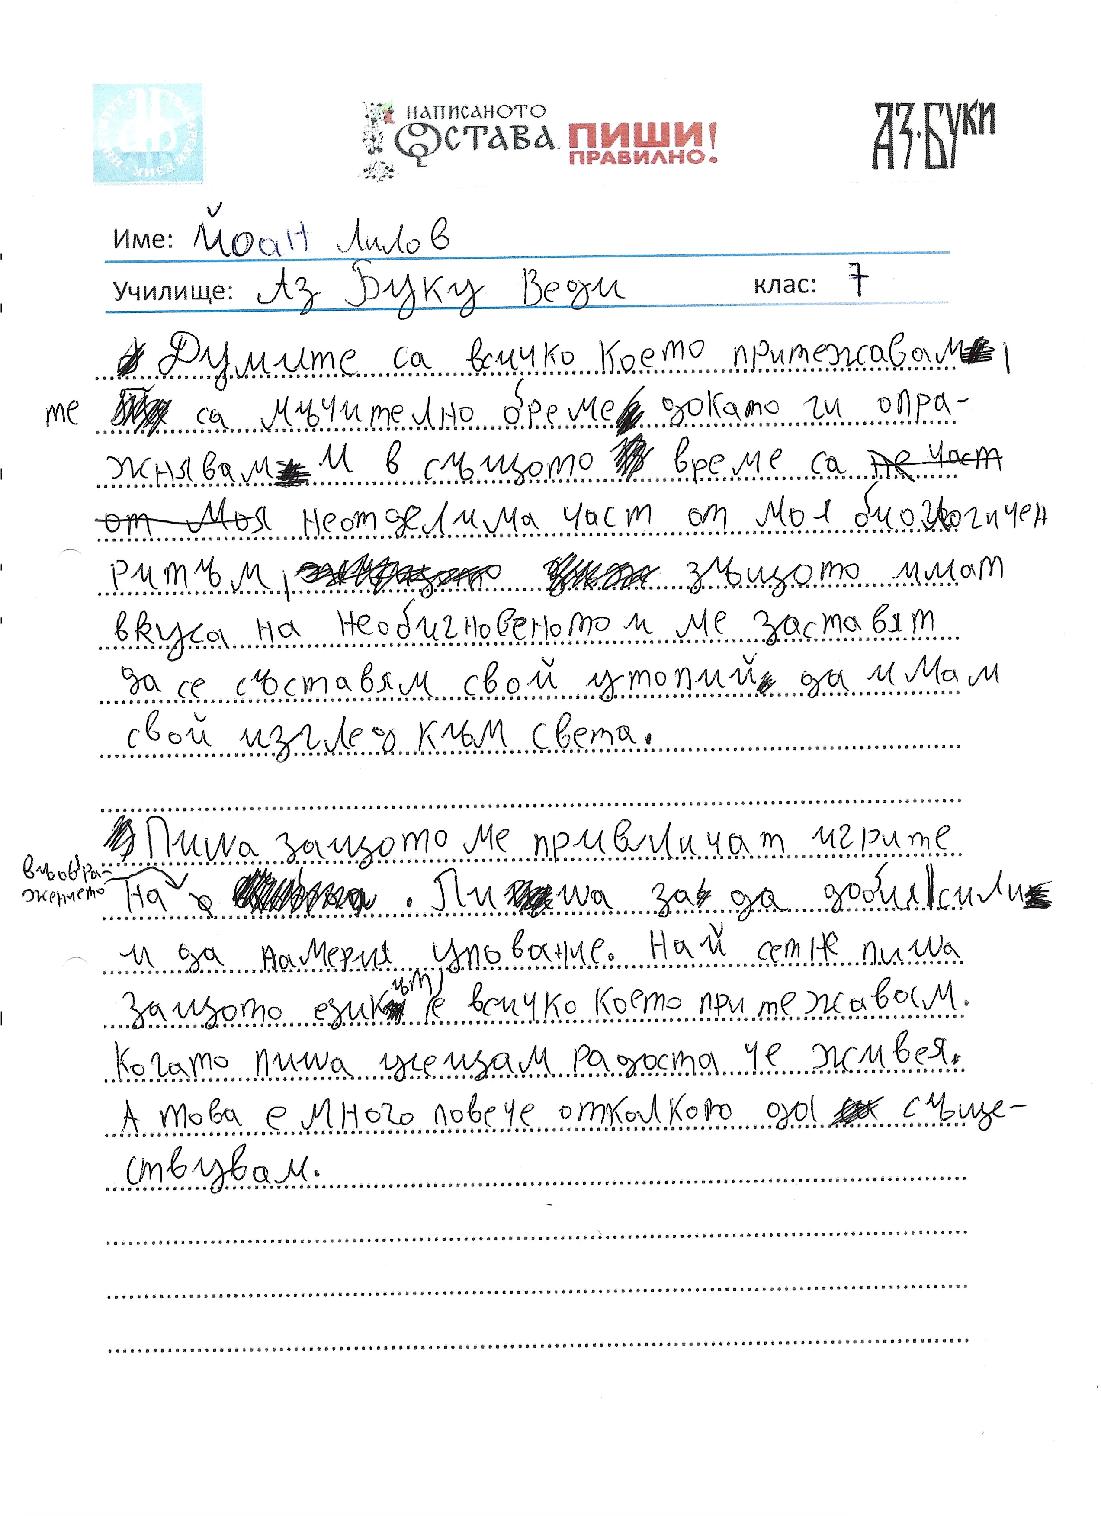 НАПИСАНОТО
ОСТАВА ПИШИ
ПРАВИЛНО!
АЗ·БУКИ
Име: Йоан Лилов
Училище: Аз Буку Веди клас: 7
Думите са всичко което притежавам,
те са мъчително бреме докато ги опра-
жнявам И в същото време са не част
от Моя неотделима част от моя биологичен
ритъм, защото имат
вкуса на необигновеното и ме заставят
да се съставям свой утопий да имам
свой изглед към света.
Пиша защото ме привличат игрите
въобра-
жението
на . Пиша за да добия сили
и да намеря упование. Най сетне пиша
защото езикът е всичко което притежавам.
Когато пиша усещам радоста че живея.
А това е много повече отколкото да съще-
ствувам.